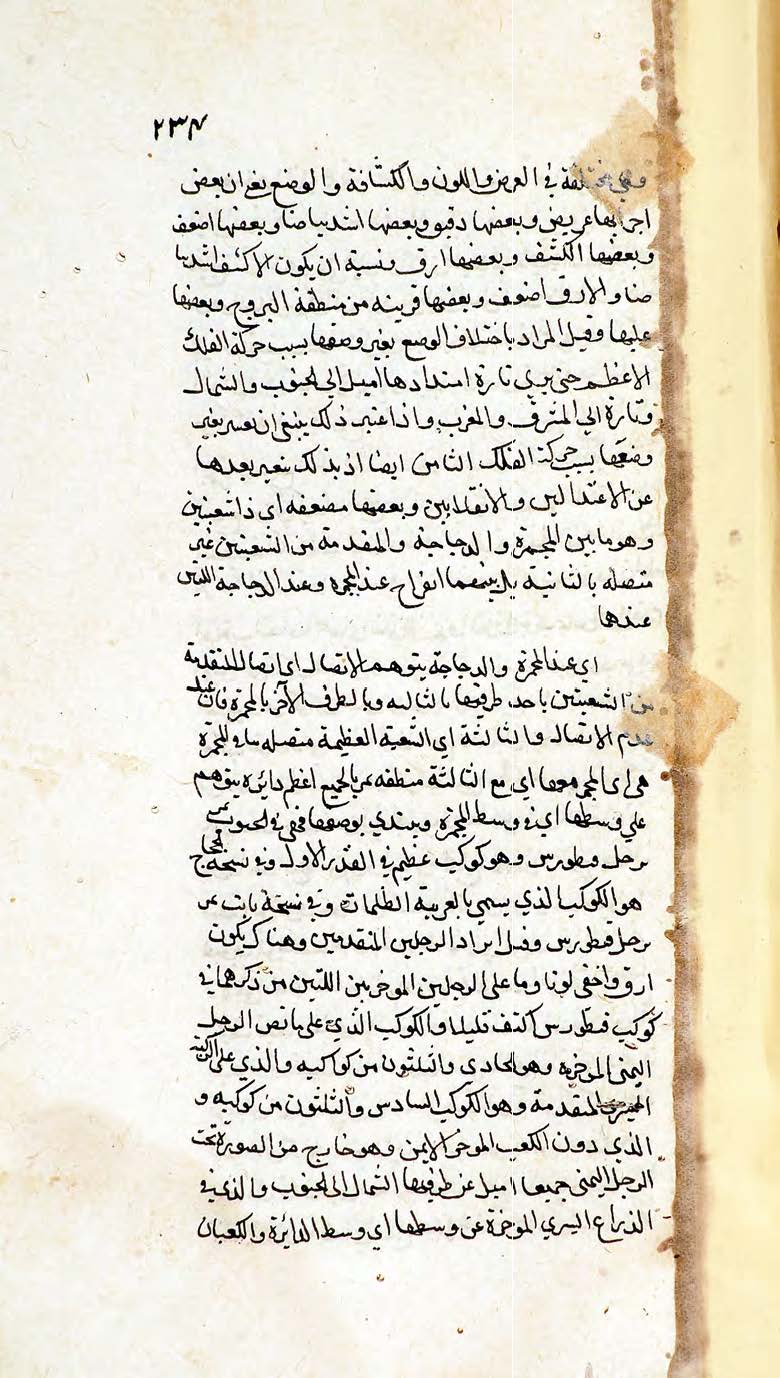 ٢٣٤
وهي مختلفة في العرض واللون والكثافة والوضع يعني ان بعض
اجزائها عريض وبعضها دقيق وبعضها اشد بياضا وبعضها اضعف
وبعضها اكثف وبعضها ارق ونسبة ان يكون الاكثف اشد بيا
ضا والارق اضعف وبعضها قريبه من منطقة البروج وبعضها
عليها وقيل المراد باختلاف الوضع تغير وضعها بسبب حركة الفلك
الاعظم حتى يري تارة امتدادها اميل الي الجنوب والشمال
وتارة الي المشرق والمغرب واذا اعتبر ذلك ينبغي ان يعتبر تغير
وضعها بسبب حركة الفلك الثامن ايضا اذ بذلك يتغير بعدها
عن الاعتدالين والانقلابين وبعضها مضعفه اي ذا شعبتين
وهو ما بين المجمرة والدجاجة والمتقدمة من الشعبتين غير
متصله بالثانية بل بينهما انفراج عند المجمره وعند الدجاجة اللتين
عندها
اي عند المجمرة والدجاجة يتوهم الاتصال اي اتصال المتقدمة
من الشعبتين باحد طرفيها بالثانيه وبالطرف الآخر بالمجمرة فان عند
عدم الاتصال والثالثة اي الشعبة العظيمة متصله المجمرة
هي اي المجره معها اي مع الثالثة منطقه يمر بالجميع اعظم دائره يتوهم
علي وسطها اي في وسط المجرة ويبتدي بوصفها فهي في الجنوب تمر
برجل قيطورس وهو كوكب عظيم في القدر الاول وفي نسخة الحجاج
هو الكوكب الذي يسمي بالعربية الظلمات وفي نسخة ثابت تمر
برجل قيطورس وقيل اراد الرجلين المتقدمين وهناك يكون
ارق واخفي لونا وما علي الرجلين الموخرين اللتين من ذكرهما في
كوكب قيطورس اكثف قليلا والكوكب الذي علي مابض الرجل
اليمنى الموخره وهو الحادي والثلثون من كواكبه والذي علي الركبة
المتقدمة وهو الكوكب السادس والثلثون من كوكبه و
الذي دون الكعب الموخر الايمن وهو خارج من الصورة تحت
الرجل اليمنى جميعها اميل عن طرفيها الشمال الي الجنوب والذي في
الذراع اليسري الموخرة عن وسطها اي وسط الدائرة والكعبان